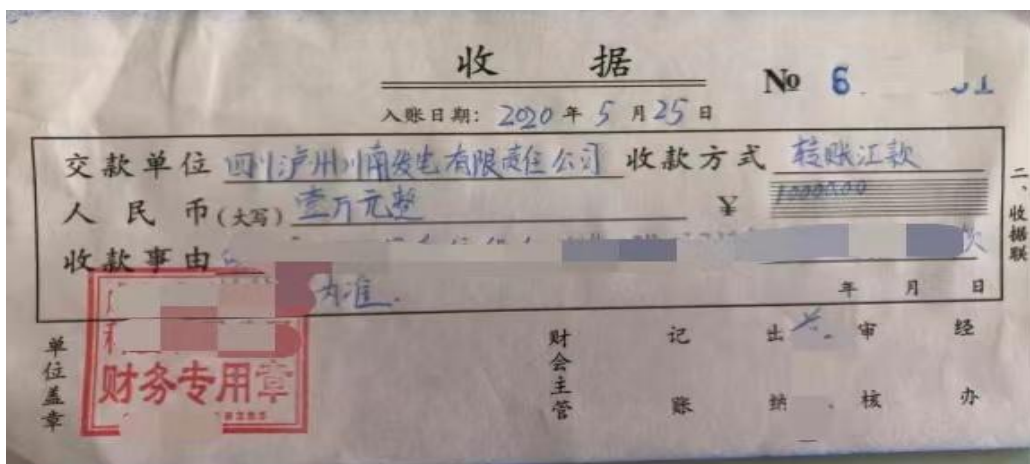 收 据
No 6
入账日期: 2020 年 5 月 25 日
交款单位 四川泸州川南发电有限责任公司 收款方式 转账汇款
人民币(大写) 壹万元整 ¥ 1000000
收款事由
为准.
年 月 日
二、收据联
单位盖章
财务专用章
财会主管
记账
出纳
审核
经办